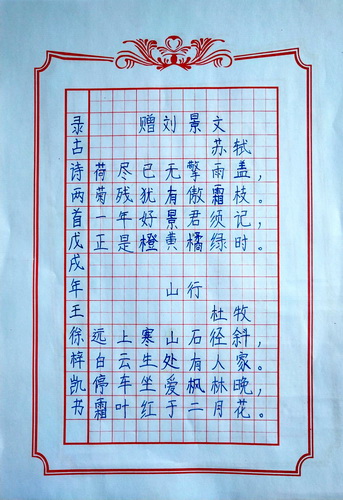 赠刘景文
苏轼
荷尽已无擎雨盖，
菊残犹有傲霜枝。
一年好景君须记，
正是橙黄橘绿时。
山行
杜牧
远上寒山石径斜，
白云生处有人家。
停车坐爱枫林晚，
霜叶红于二月花。
录古诗两首戊戌年王徐梓凯书